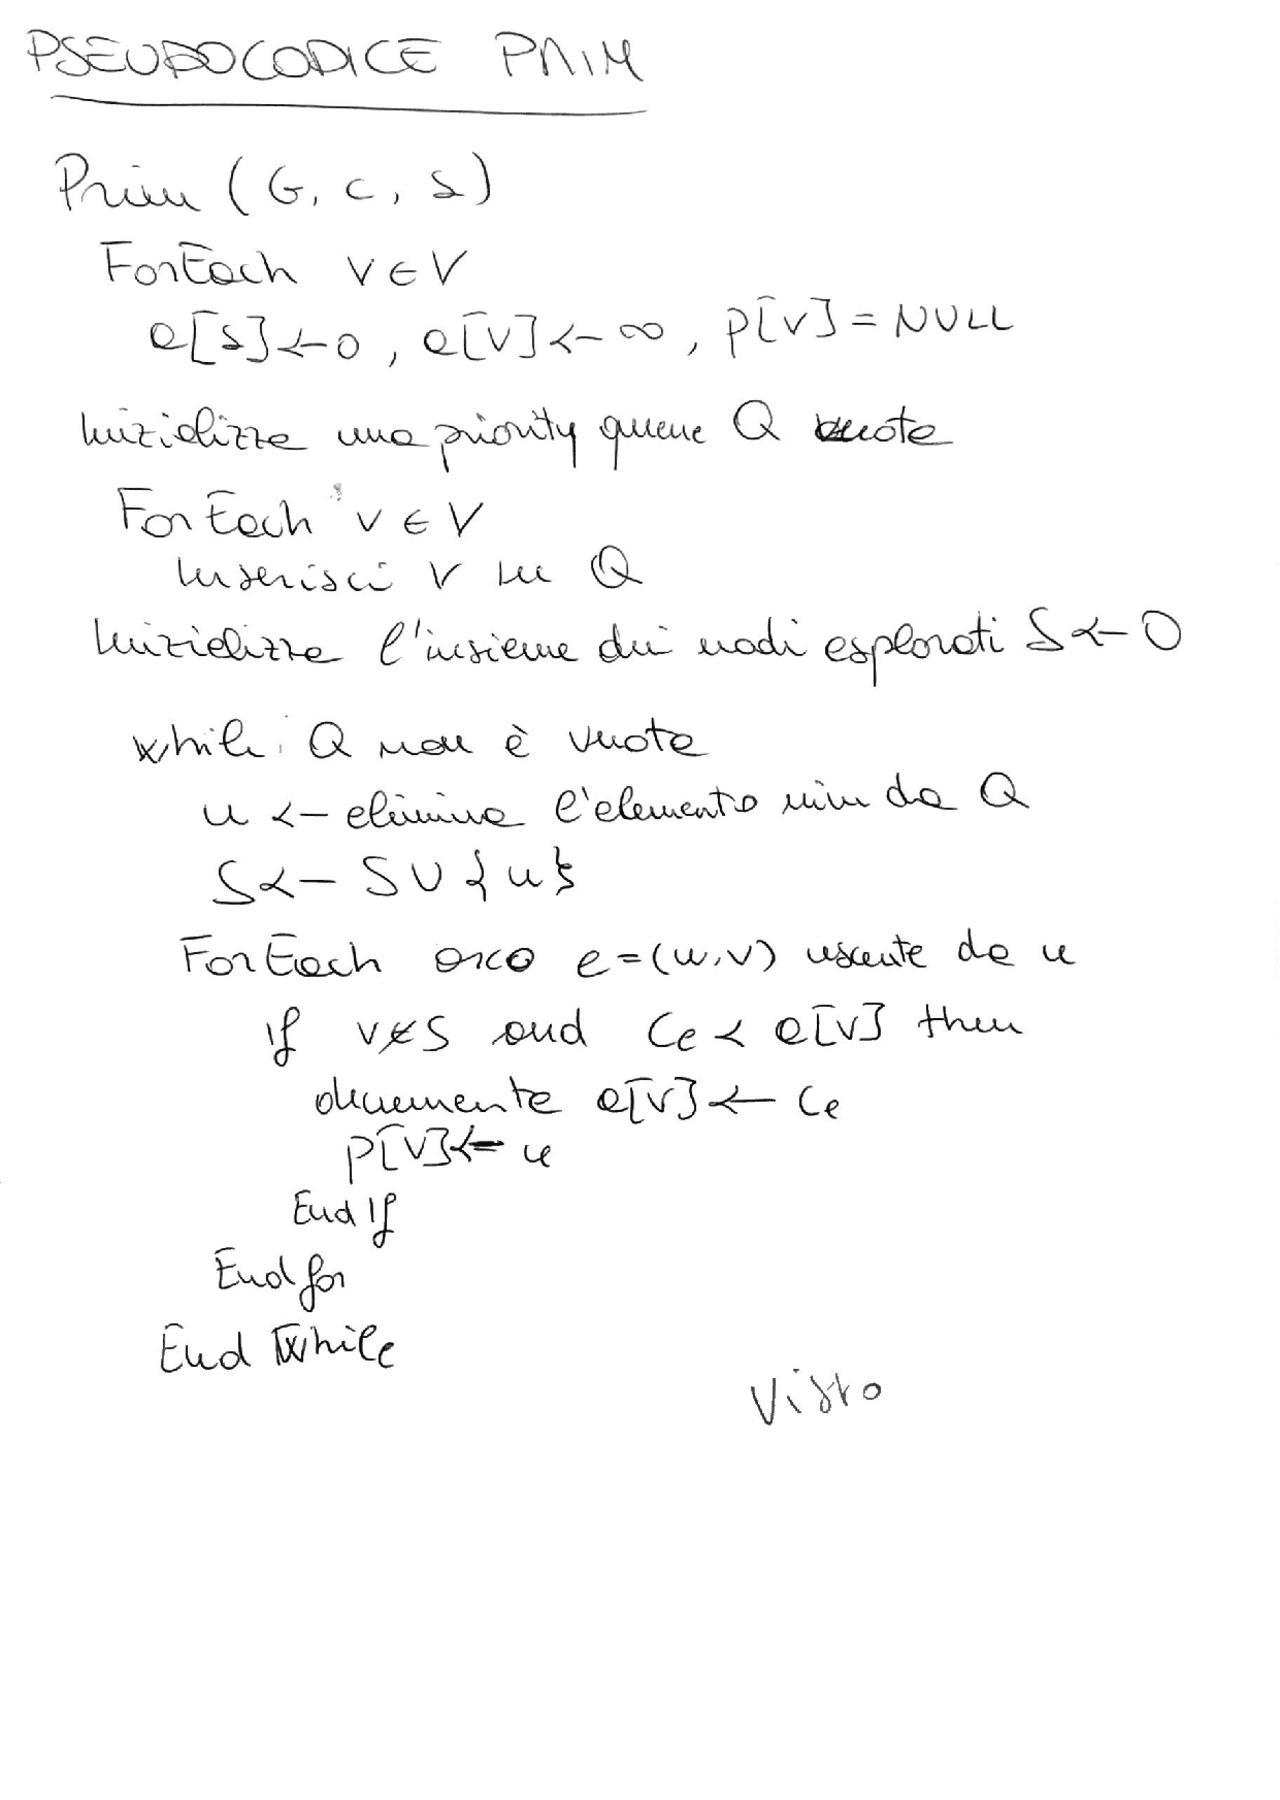 PSEUDOCODICE PRIM
Prim (G, c, s)
ForEach v ∈ V
a[s] ← 0, a[v] ← ∞, p[v] = NULL
Inizializza una priority queue Q vuota
ForEach v ∈ V
Inserisci v in Q
Inizializza l'insieme dei nodi esplorati S ← O
while Q non è vuota
u ← elimina l'elemento min da Q
S ← S ∪ {u}
ForEach arco e = (u,v) uscente da u
If v ∉ S and Ce < a[v] then
decrementa a[v] ← Ce
p[v] ← u
End If
End for
End While
Visto